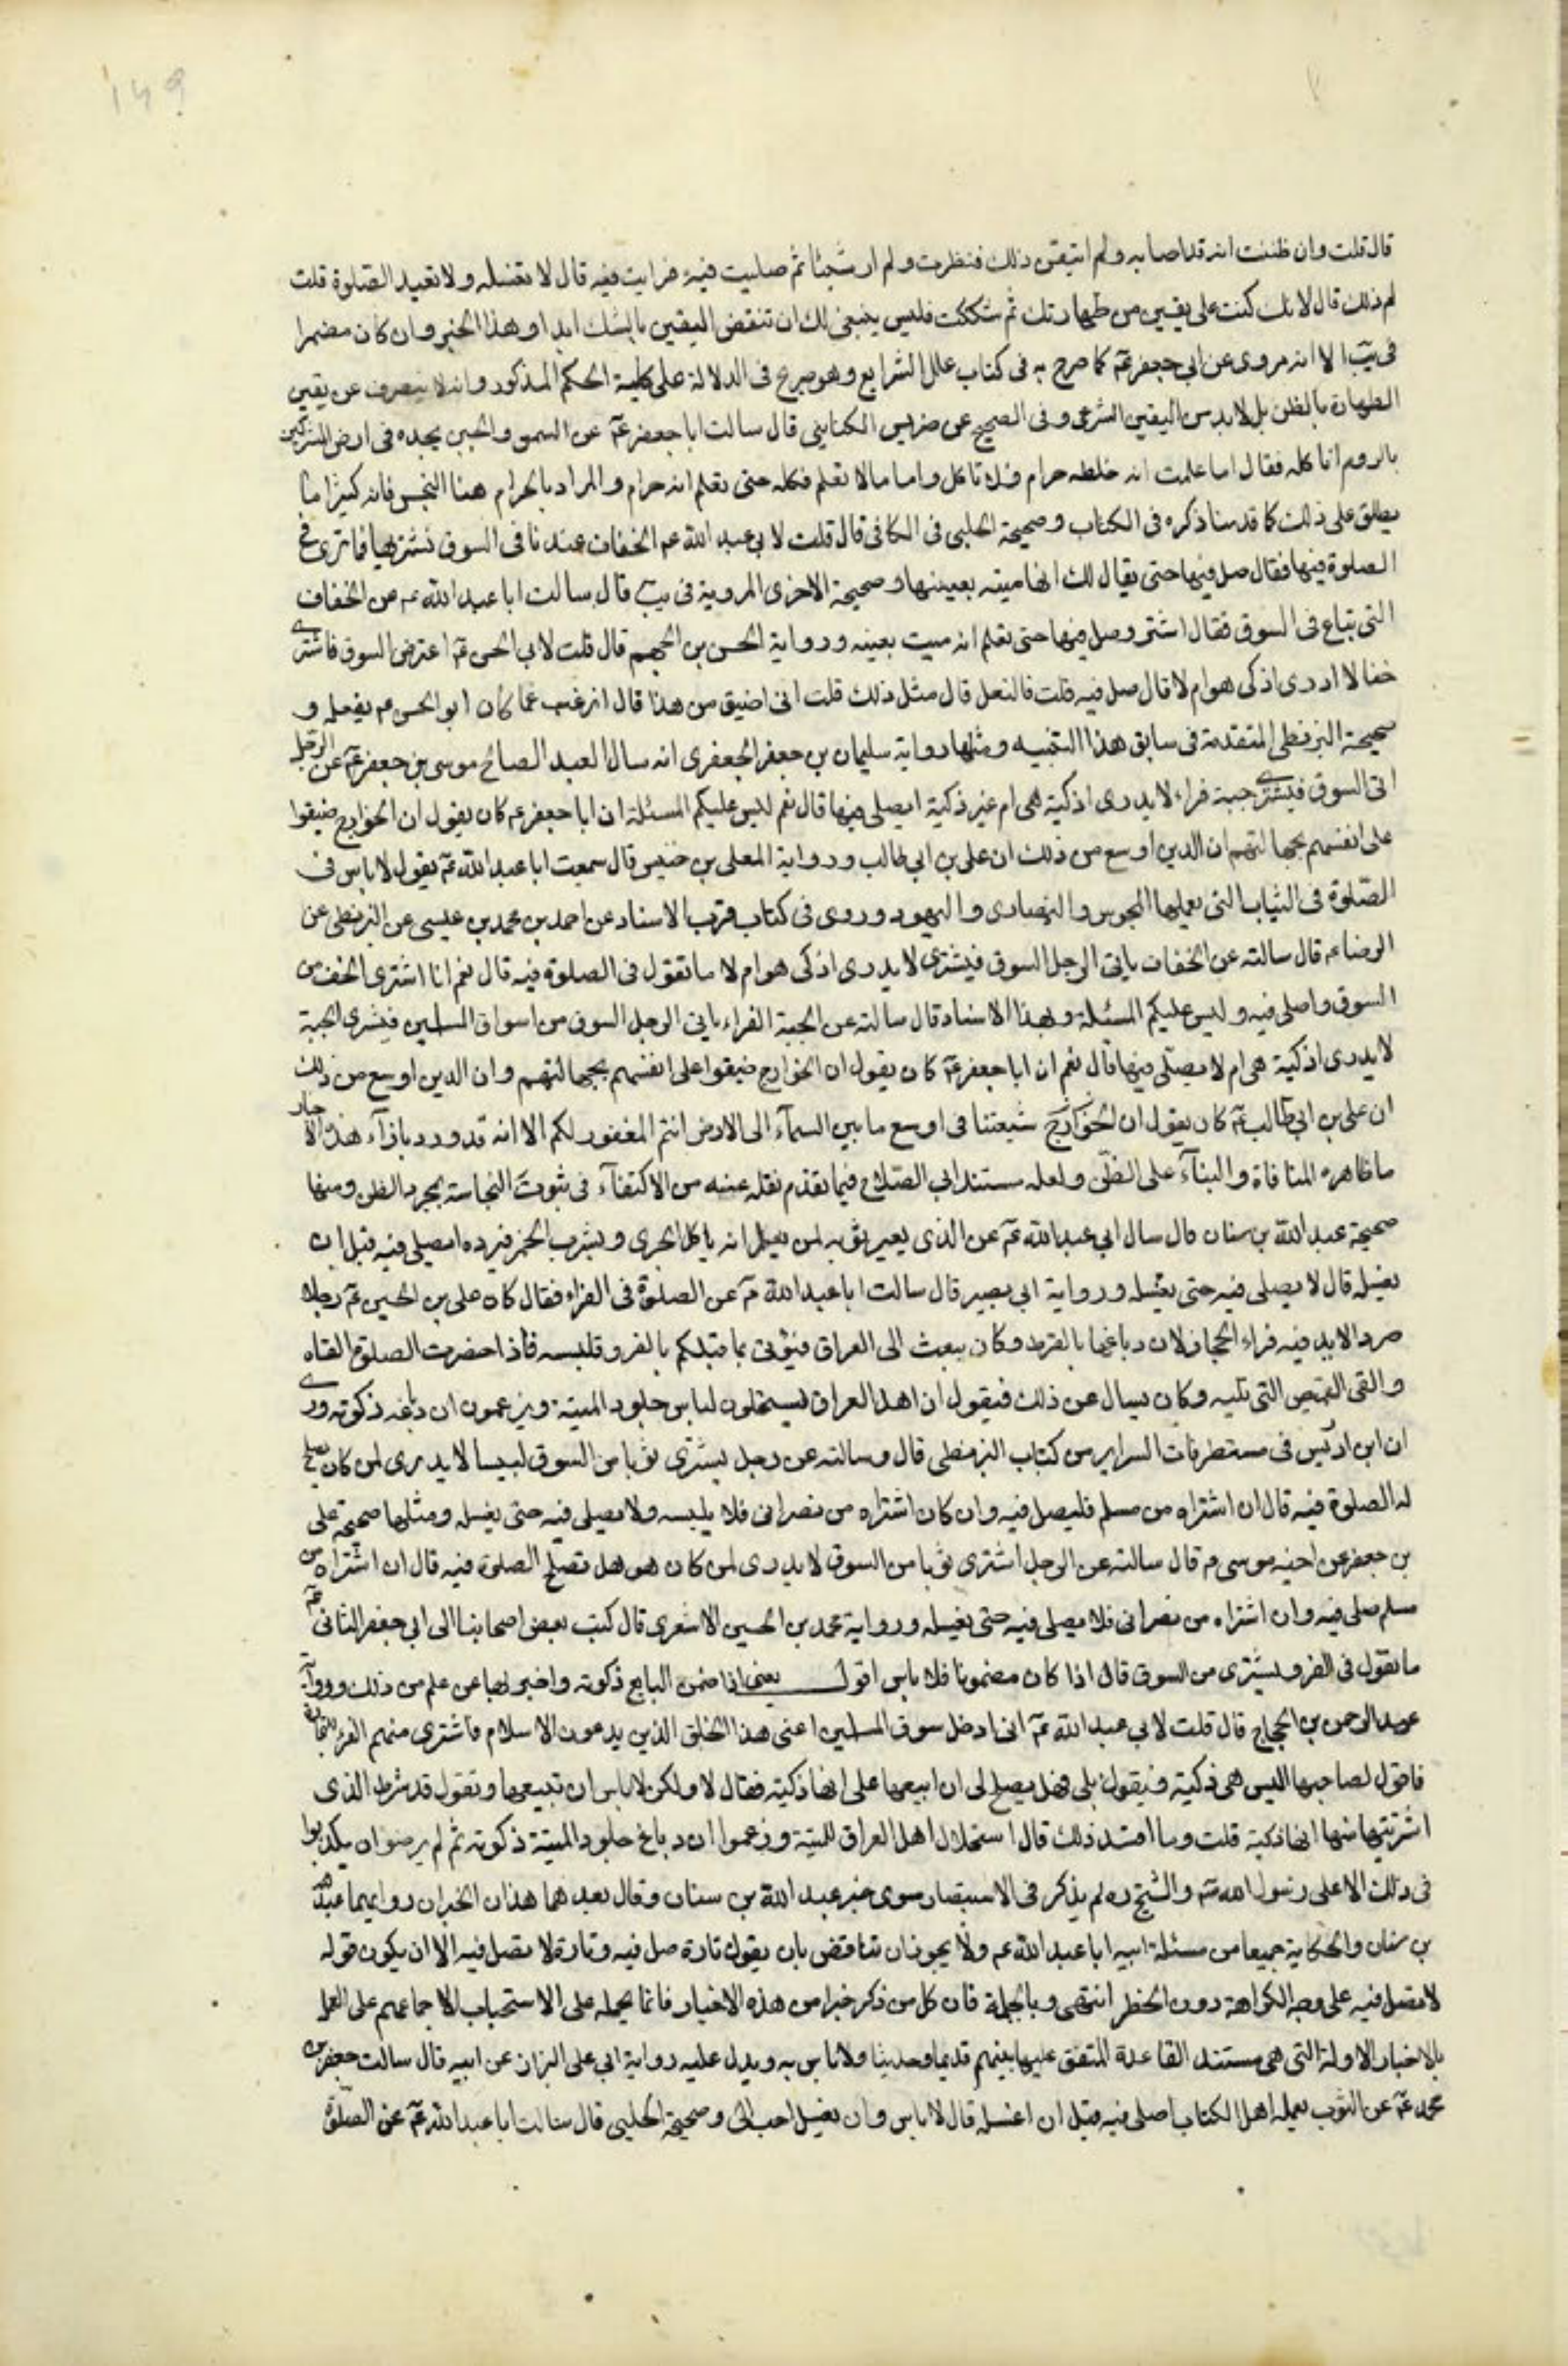 149
قال قلت وان ظننت انه قد اصابه ولم اتيقن ذلك فنظرت ولم ار شيئا ثم صليت فيه فرايت فيه قال لا تغسله ولا تعيد الصّلوة قلت
لم ذلك قال لانك كنت على يقين من طهارتك ثم شككت فليس ينبغى لك ان تنقض اليقين بالشك ابدا وهذا الخبر وان كان مضمرا
فى يب الا انه مروى عن ابى جعفر عم كما صرح به فى كتاب علل الشرايع وهو صريح فى الدلالة على كلية الحكم المذكور وانه لا ينصرف عن يقين
الطهارة بالظن بل لابد من اليقين الشرعى وفى الصحيح عن ضريس الكناسى قال سالت ابا جعفر عم عن السمن والجبن يجده فى ارض المشركين
بالروم اناكله فقال اما علمت انه خلطه حرام فلا تاكل واما ما لا تعلم فكله حتى تعلم انه حرام والمراد بالحرام هنا النجس فانه كثيرا ما
يطلق على ذلك كما قدمنا ذكره فى الكتاب وصحيحة الحلبى فى الكافى قال قلت لابى عبد الله عم الخفاف عندنا فى السوق نشتريها فما ترى فى
الصلوة فيها فقال صل فيها حتى يقال لك انها ميته بعينها وصحيحة الاخرى المروية فى يب قال سالت ابا عبد الله عم عن الخفاف
التى تباع فى السوق فقال اشتر وصل فيها حتى تعلم انه ميت بعينه ورواية الحسن بن الجهم قال قلت لابى الحسن عم اعترض السوق فاشترى
خفا لا ادرى اذكى هو ام لا قال صل فيه قلت فالنعل قال مثل ذلك قلت انى اضيق من هذا قال اترغب عما كان ابو الحسن عم يفعله و
صحيحة البزنطى المتقدمة فى سابق هذا التنبيه ومثلها رواية سليمان بن جعفر الجعفرى انه سال العبد الصالح موسى بن جعفر عم عن الرجل
اتى السوق فيشترى جبة فراء لا يدرى اذكية هى ام غير ذكية ايصلى فيها قال نعم ليس عليكم المسئلة ان ابا جعفر عم كان يقول ان الخوارج ضيقوا
على انفسهم بجهالتهم ان الدين اوسع من ذلك ان على بن ابى طالب ورواية المعلى بن خنيس قال سمعت ابا عبد الله عم يقول لا باس فى
الصّلوة فى الثياب التى يعملها المجوس والنصارى واليهود وروى فى كتاب قرب الاسناد عن احمد بن محمد بن عيسى عن البزنطى عن
الرضا عم قال سالته عن الخفاف ياتى الرجل السوق فيشترى لا يدرى اذكى هو ام لا ما تقول فى الصلوة فيه قال نعم انا اشترى الخف من
السوق واصلى فيه وليس عليكم المسئلة وبهذا الاسناد قال سالته عن الجبة الفراء ياتى الرجل السوق من اسواق المسلمين فيشترى الجبة
لا يدرى اذكية هى ام لا يصلّى فيها قال نعم ان ابا جعفر عم كان يقول ان الخوارج ضيقوا على انفسهم بجهالتهم وان الدين اوسع من ذلك
ان على بن ابى طالب عم كان يقول ان الخوارج شيعتنا فى اوسع ما بين السمآء الى الارض انتم المغفور لكم الا انه قد ورد بازآء هذه الاخبار
ما ظاهره المنافاة والبنآء على الظنّ ولعله مستند ابى الصّلاح فيما تقدم نقله عنه من الاكتفآء فى ثبوت النجاسة بمجرد الظن ومنها
صحيحة عبد الله بن سنان قال سال ابى عبد الله عم عن الذى يعير ثوبه لمن يعلم انه ياكل الجرى ويشرب الخمر فيرده ايصلى فيه قبل ان
يغسله قال لا يصلى فيه حتى يغسله ورواية ابى بصير قال سالت ابا عبد الله عم عن الصلوة فى الفراء فقال كان على بن الحسين عم رجلا
صردا لا يدفيه فراء الحجاز لان دباغها بالقرظ وكان يبعث الى العراق فيؤتى بما قبلكم بالفرو فلبسه فاذا حضرت الصلوة القاه
والقى القميص التى تليه وكان يسال عن ذلك فيقول ان اهل العراق يستحلون لباس جلود الميتة ويزعمون ان دباغه ذكوته وروى
ان ابن ادريس فى مستطرفات السراير من كتاب البزنطى قال وسالته عن رجل يشترى ثوبا من السوق لبيسا لا يدرى لمن كان يصلح
له الصلوة فيه قال ان اشتراه من مسلم فليصل فيه وان كان اشتراه من نصرانى فلا يلبسه ولا يصلى فيه حتى يغسله ومثلها صحيحة على
بن جعفر عن اخيه موسى عم قال سالته عن الرجل اشترى ثوبا من السوق لا يدرى لمن كان هو هل تصلح الصلوة فيه قال ان اشتراه من
مسلم صلى فيه وان اشتراه من نصرانى فلا يصلى فيه حتى يغسله ورواية محمد بن الحسين الاشعرى قال كتب بعض اصحابنا الى ابى جعفر الثانى عم
ما تقول فى الفرو يشترى من السوق قال اذا كان مضمونا فلا باس اقول يعنى اذا ضمن البايع ذكوته واخبر بها عن علم من ذلك ورواية
عبد الرحمن بن الحجاج قال قلت لابى عبد الله عم انى ادخل سوق المسلمين اعنى هذا الخلق الذين يدعون الاسلام فاشترى منهم الفراء للتجارة
فاقول لصاحبها اليس هى ذكية فيقول بلى فهل يصلح لى ان ابيعها على انها ذكية فقال لا ولكن لا باس ان تبيعها وتقول قد شرط الذى
اشتريتها منها انها ذكية قلت وما افسد ذلك قال استحلال اهل العراق للميتة وزعموا ان دباغ جلود الميتة ذكوته ثم لم يرضوا ان يكذبوا
فى ذلك الا على رسول الله ص والشيخ ره لم يذكر فى الاستبصار سوى خبر عبد الله بن سنان وقال بعد هما هذان الخبران رواهما عبد الله
بن سنان والحكاية جميعا من مسئلة ابيه ابا عبد الله عم ولا يجوز ان تناقض بان يقول تارة صل فيه وتارة لا تصل فيه الا ان يكون قوله
لا تصل فيه على وجه الكراهة دون الحظر انتهى وبالجملة فان كل من ذكر خبرا من هذه الاخبار فانما يحمله على الاستحباب لاجماعهم على العمل
بالاخبار الاولة التى هى مستند القاعدة المتفق عليها بينهم قديما وحديثا ولا باس به ويدل عليه رواية ابى على البزاز عن ابيه قال سالت جعفر بن
محمد عم عن الثوب يعمله اهل الكتاب اصلى فيه قبل ان اغسله قال لا باس وان يغسل احب الىّ وصحيحة الحلبى قال سالت ابا عبد الله عم عن الصّلوة